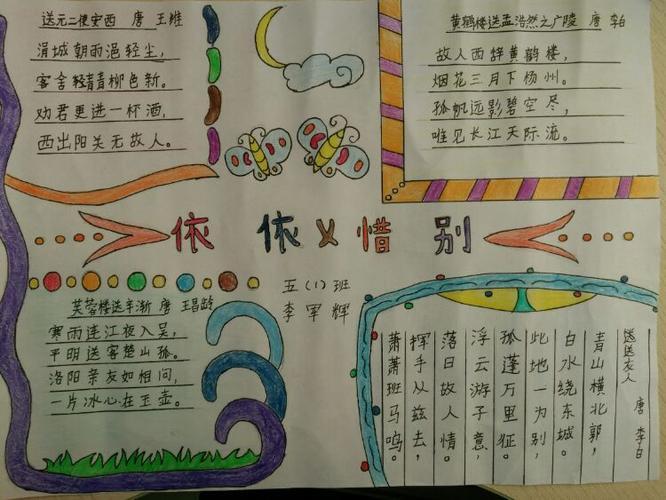 送元二使安西 唐 王维
渭城朝雨浥轻尘,
客舍轻青青柳色新。
劝君更进一杯酒,
西出阳关无故人。
黄鹤楼送孟浩然之广陵 唐 李白
故人西辞黄鹤楼,
烟花三月下杨州。
孤帆远影碧空尽,
唯见长江天际流。
依依惜别
五(1)班
李军辉
芙蓉楼送辛渐 唐 王昌龄
寒雨连江夜入吴,
平明送客楚山孤。
洛阳亲友如相问,
一片冰心在玉壶。
送送友人 唐 李白
青山横北郭,
白水绕东城。
此地一为别,
孤蓬万里征。
浮云游子意,
落日故人情。
挥手从兹去,
萧萧班马鸣。